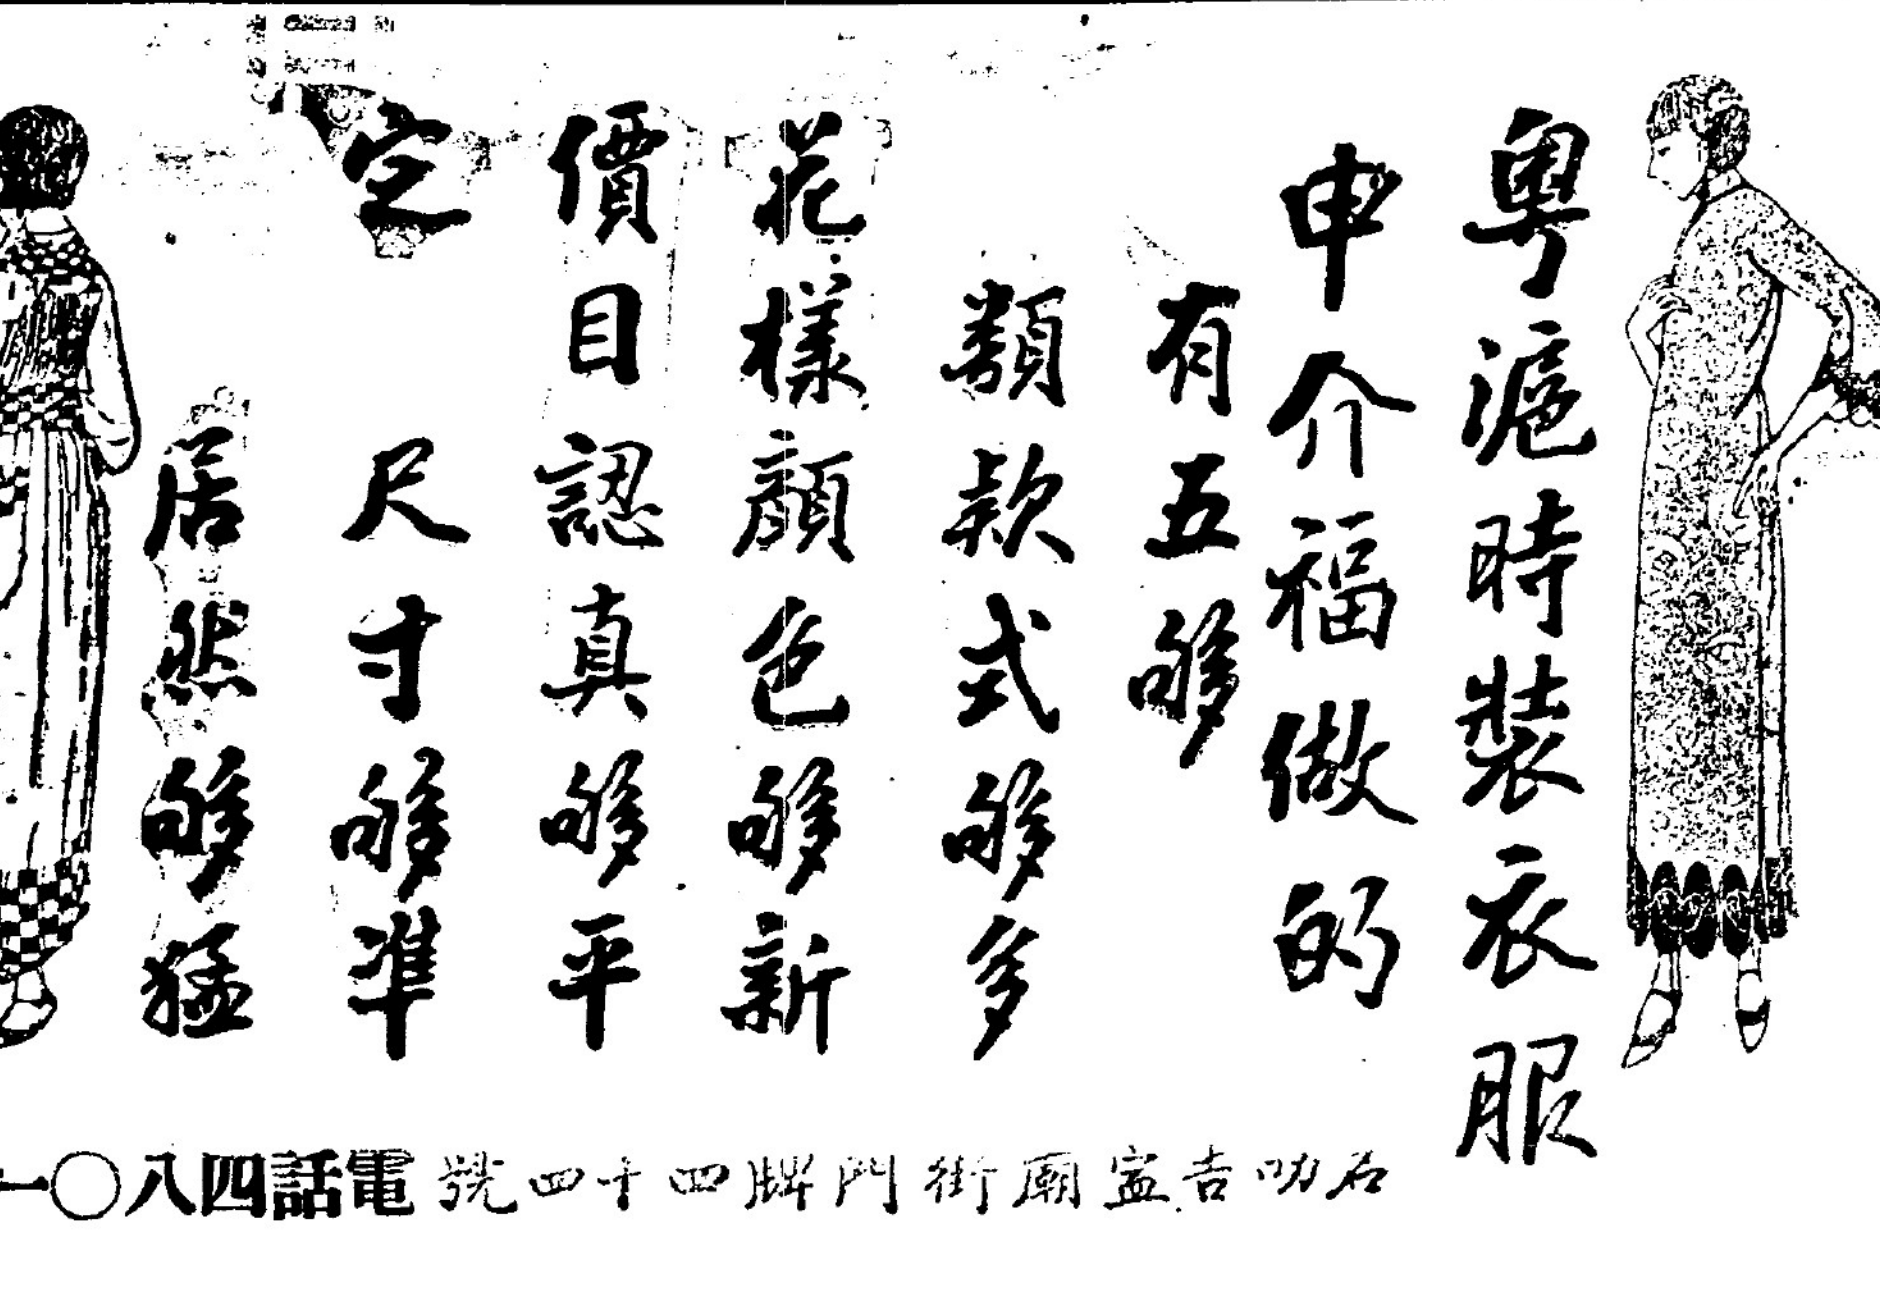 粵滬時裝衣服
申介福做的
有五够
類款式够多
花樣顏色够新
價目認真够平
定尺寸够準
居然够猛
石叻吉寍廟街門牌四十四號
電話四八〇一